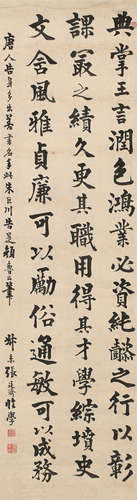 典掌王言潤色鴻業必資純懿之行以彰
課最之績久更其職用得其才學綜墳史
文含風雅貞廉可以勵俗通敏可以成務
唐人告身多出善書名手此朱巨川告是顏魯公筆